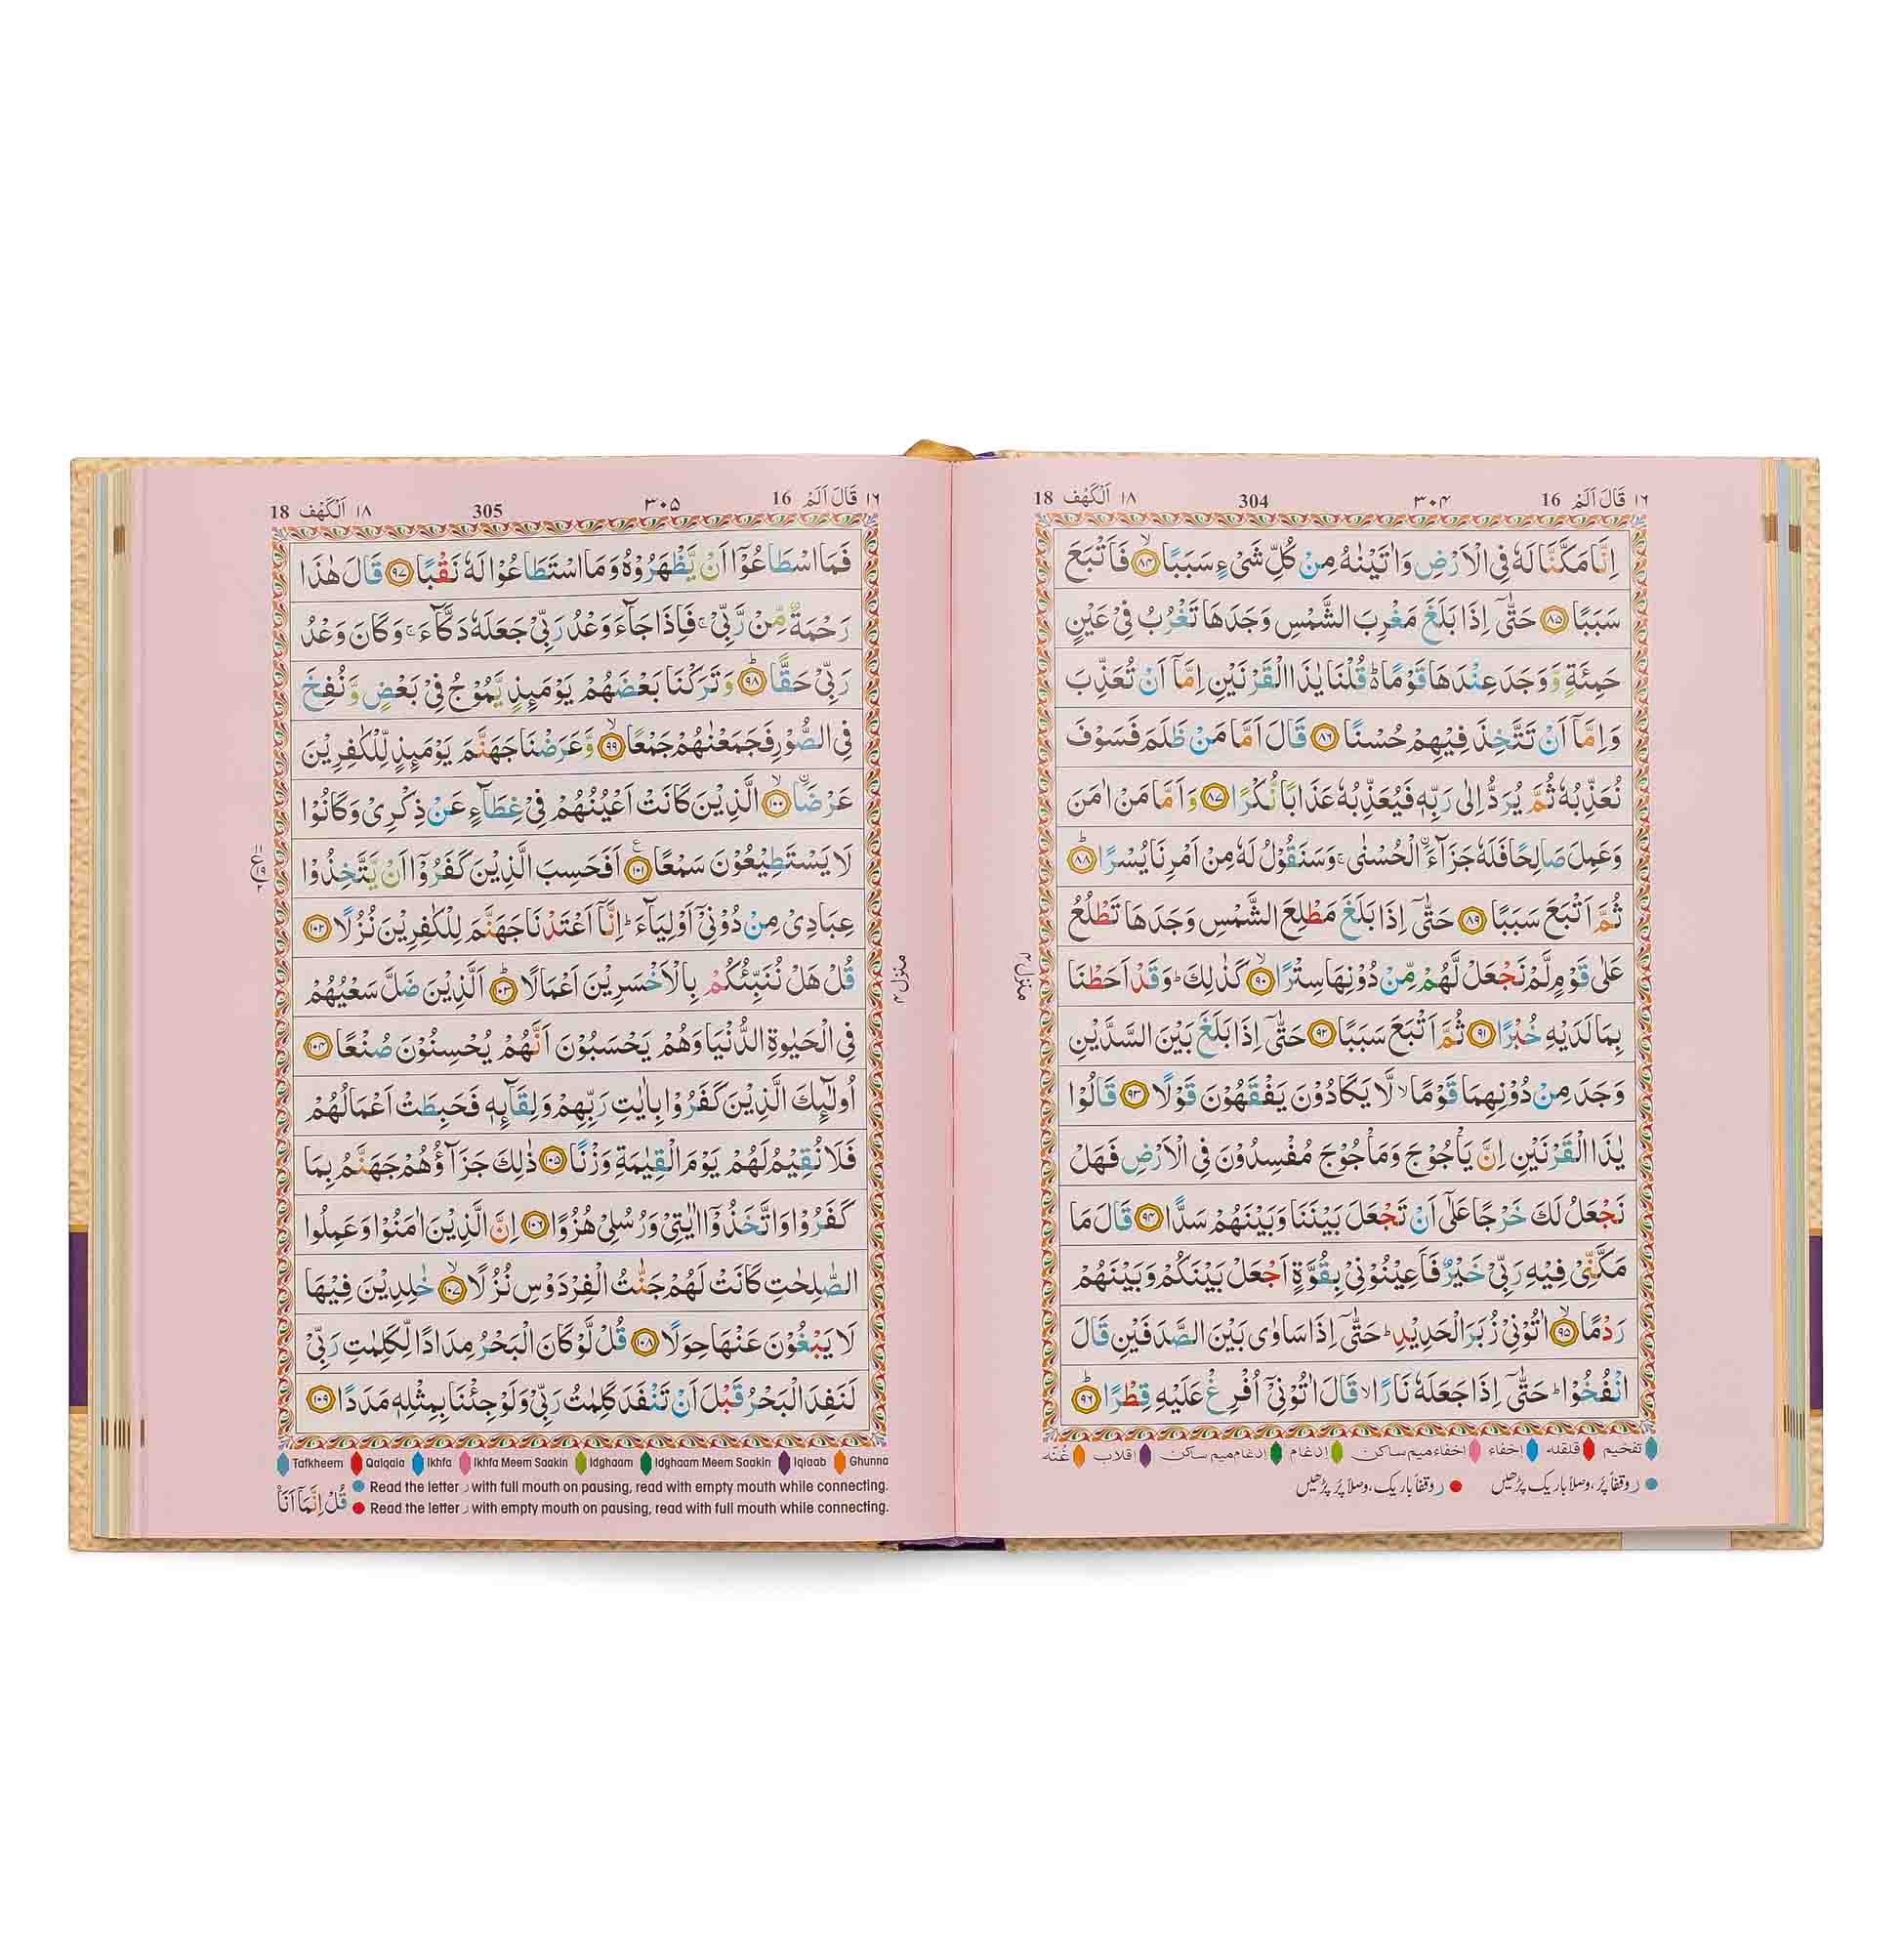 ١٦ قَالَ اَلَمْ 16 ٣٠٤ 304 ١٨ اَلْكَهْف 18
اِنَّا مَكَّنَّا لَهٗ فِی الْاَرْضِ وَاٰتَیْنٰهُ مِنْ كُلِّ شَیْءٍ سَبَبًا ۙ‏﴿۸۴﴾ فَاَتْبَعَ
سَبَبًا ‏﴿۸۵﴾ حَتّٰۤی اِذَا بَلَغَ مَغْرِبَ الشَّمْسِ وَجَدَهَا تَغْرُبُ فِیْ عَیْنٍ
حَمِئَةٍ وَّوَجَدَ عِنْدَهَا قَوْمًا ؕ۬ قُلْنَا یٰذَا الْقَرْنَیْنِ اِمَّاۤ اَنْ تُعَذِّبَ
وَاِمَّاۤ اَنْ تَتَّخِذَ فِیْهِمْ حُسْنًا ‏﴿۸۶﴾ قَالَ اَمَّا مَنْ ظَلَمَ فَسَوْفَ
نُعَذِّبُهٗ ثُمَّ یُرَدُّ اِلٰی رَبِّهٖ فَیُعَذِّبُهٗ عَذَابًا نُّكْرًا ‏﴿۸۷﴾ وَاَمَّا مَنْ اٰمَنَ
وَعَمِلَ صَالِحًا فَلَهٗ جَزَآءَ ۨالْحُسْنٰی ۚ وَسَنَقُوْلُ لَهٗ مِنْ اَمْرِنَا یُسْرًا ؕ‏﴿۸۸﴾
ثُمَّ اَتْبَعَ سَبَبًا ‏﴿۸۹﴾ حَتّٰۤی اِذَا بَلَغَ مَطْلِعَ الشَّمْسِ وَجَدَهَا تَطْلُعُ
عَلٰی قَوْمٍ لَّمْ نَجْعَلْ لَّهُمْ مِّنْ دُوْنِهَا سِتْرًا ۙ‏﴿۹۰﴾ كَذٰلِكَ ؕ وَقَدْ اَحَطْنَا
بِمَا لَدَیْهِ خُبْرًا ‏﴿۹۱﴾ ثُمَّ اَتْبَعَ سَبَبًا ‏﴿۹۲﴾ حَتّٰۤی اِذَا بَلَغَ بَیْنَ السَّدَّیْنِ
وَجَدَ مِنْ دُوْنِهِمَا قَوْمًا ۙ لَّا یَكَادُوْنَ یَفْقَهُوْنَ قَوْلًا ‏﴿۹۳﴾ قَالُوْا
یٰذَا الْقَرْنَیْنِ اِنَّ یَاْجُوْجَ وَمَاْجُوْجَ مُفْسِدُوْنَ فِی الْاَرْضِ فَهَلْ
نَجْعَلُ لَكَ خَرْجًا عَلٰۤی اَنْ تَجْعَلَ بَیْنَنَا وَبَیْنَهُمْ سَدًّا ‏﴿۹۴﴾ قَالَ مَا
مَكَّنِّیْ فِیْهِ رَبِّیْ خَیْرٌ فَاَعِیْنُوْنِیْ بِقُوَّةٍ اَجْعَلْ بَیْنَكُمْ وَبَیْنَهُمْ
رَدْمًا ۙ‏﴿۹۵﴾ اٰتُوْنِیْ زُبَرَ الْحَدِیْدِ ؕ حَتّٰۤی اِذَا سَاوٰی بَیْنَ الصَّدَفَیْنِ قَالَ
انْفُخُوْا ؕ حَتّٰۤی اِذَا جَعَلَهٗ نَارًا ۙ قَالَ اٰتُوْنِیْۤ اُفْرِغْ عَلَیْهِ قِطْرًا ؕ‏﴿۹۶﴾
منزل ۴
تفخیم قلقله اخفاء اخفاء میم ساکن ادغام ادغام میم ساکن اقلاب غُنّه
ر وقفاً پُر، وصلاً باریک پڑھیں ر وقفاً باریک، وصلاً پُر پڑھیں
١٦ قَالَ اَلَمْ 16 ٣٠٥ 305 ١٨ اَلْكَهْف 18
فَمَا اسْطَاعُوْۤا اَنْ یَّظْهَرُوْهُ وَمَا اسْتَطَاعُوْا لَهٗ نَقْبًا ‏﴿۹۷﴾ قَالَ هٰذَا
رَحْمَةٌ مِّنْ رَّبِّیْ ۚ فَاِذَا جَآءَ وَعْدُ رَبِّیْ جَعَلَهٗ دَكَّآءَ ۚ وَكَانَ وَعْدُ
رَبِّیْ حَقًّا ؕ‏﴿۹۸﴾ وَتَرَكْنَا بَعْضَهُمْ یَوْمَئِذٍ یَّمُوْجُ فِیْ بَعْضٍ وَّنُفِخَ
فِی الصُّوْرِ فَجَمَعْنٰهُمْ جَمْعًا ۙ‏﴿۹۹﴾ وَّعَرَضْنَا جَهَنَّمَ یَوْمَئِذٍ لِّلْكٰفِرِیْنَ
عَرْضَا ۙ‏﴿۱۰۰﴾ ۨالَّذِیْنَ كَانَتْ اَعْیُنُهُمْ فِیْ غِطَآءٍ عَنْ ذِكْرِیْ وَكَانُوْا
لَا یَسْتَطِیْعُوْنَ سَمْعًا ‏﴿۱۰۱﴾ اَفَحَسِبَ الَّذِیْنَ كَفَرُوْۤا اَنْ یَّتَّخِذُوْا
عِبَادِیْ مِنْ دُوْنِیْۤ اَوْلِیَآءَ ؕ اِنَّاۤ اَعْتَدْنَا جَهَنَّمَ لِلْكٰفِرِیْنَ نُزُلًا ‏﴿۱۰۲﴾
قُلْ هَلْ نُنَبِّئُكُمْ بِالْاَخْسَرِیْنَ اَعْمَالًا ؕ‏﴿۱۰۳﴾ اَلَّذِیْنَ ضَلَّ سَعْیُهُمْ
فِی الْحَیٰوةِ الدُّنْیَا وَهُمْ یَحْسَبُوْنَ اَنَّهُمْ یُحْسِنُوْنَ صُنْعًا ‏﴿۱۰۴﴾
اُولٰٓئِكَ الَّذِیْنَ كَفَرُوْا بِاٰیٰتِ رَبِّهِمْ وَلِقَآئِهٖ فَحَبِطَتْ اَعْمَالُهُمْ
فَلَا نُقِیْمُ لَهُمْ یَوْمَ الْقِیٰمَةِ وَزْنًا ‏﴿۱۰۵﴾ ذٰلِكَ جَزَآؤُهُمْ جَهَنَّمُ بِمَا
كَفَرُوْا وَاتَّخَذُوْۤا اٰیٰتِیْ وَرُسُلِیْ هُزُوًا ‏﴿۱۰۶﴾ اِنَّ الَّذِیْنَ اٰمَنُوْا وَعَمِلُوا
الصّٰلِحٰتِ كَانَتْ لَهُمْ جَنّٰتُ الْفِرْدَوْسِ نُزُلًا ۙ‏﴿۱۰۷﴾ خٰلِدِیْنَ فِیْهَا
لَا یَبْغُوْنَ عَنْهَا حِوَلًا ‏﴿۱۰۸﴾ قُلْ لَّوْ كَانَ الْبَحْرُ مِدَادًا لِّكَلِمٰتِ رَبِّیْ
لَنَفِدَ الْبَحْرُ قَبْلَ اَنْ تَنْفَدَ كَلِمٰتُ رَبِّیْ وَلَوْ جِئْنَا بِمِثْلِهٖ مَدَدًا ‏﴿۱۰۹﴾
منزل ۴
Tafkheem Qalqala Ikhfa Ikhfa Meem Saakin Idghaam Idghaam Meem Saakin Iqlaab Ghunna
Read the letter ر with full mouth on pausing, read with empty mouth while connecting.
Read the letter ر with empty mouth on pausing, read with full mouth while connecting.
قُلْ اِنَّمَاۤ اَنَا